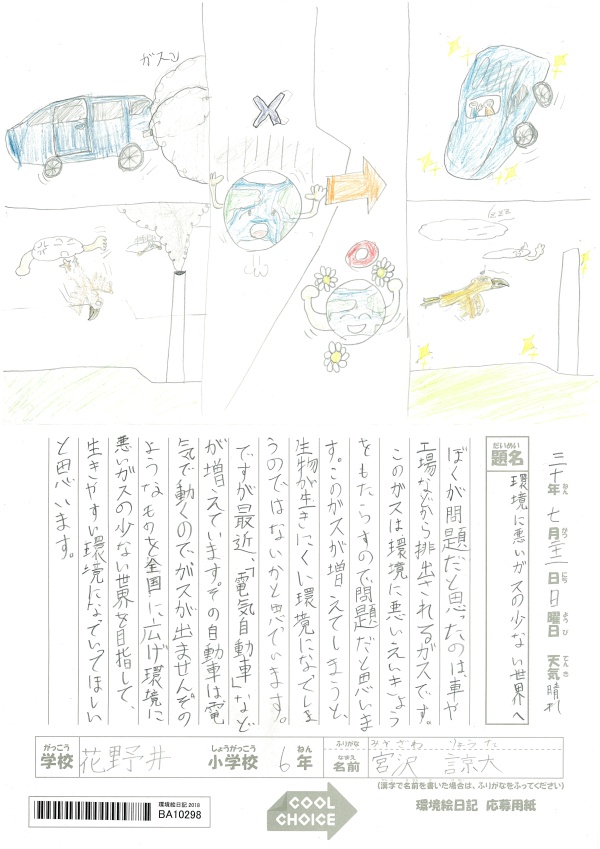 ガス
三十年 七月二十二日 日曜日 天気 晴れ
ねん がつ にち ようび てんき
だいめい
題名 環境に悪いガスの少ない世界へ
ぼくが問題だと思ったのは、車や
工場などから排出されるガスです。
このガスは環境に悪いえいきょう
をもたらすので問題だと思いま
す。このガスが増えてしまうと、
生物が生きにくい環境になってしま
うのではないかと思っています。
ですが最近、「電気自動車」など
が増えています。その自動車は電
気で動くのでガスが出ませんその
ようなものを全国に広げ環境に
悪いガスの少ない世界を目指して、
生きやすい環境になっていてほしい
と思います。
がっこう しょうがっこう ねん ふりがな みやざわ りょうた
学校 花野井 小学校 6年 なまえ 名前 宮沢 諒大
(漢字で名前を書いた場合は、ふりがなをふってください)
環境絵日記2018
BA10298
COOL
CHOICE
環境絵日記 応募用紙